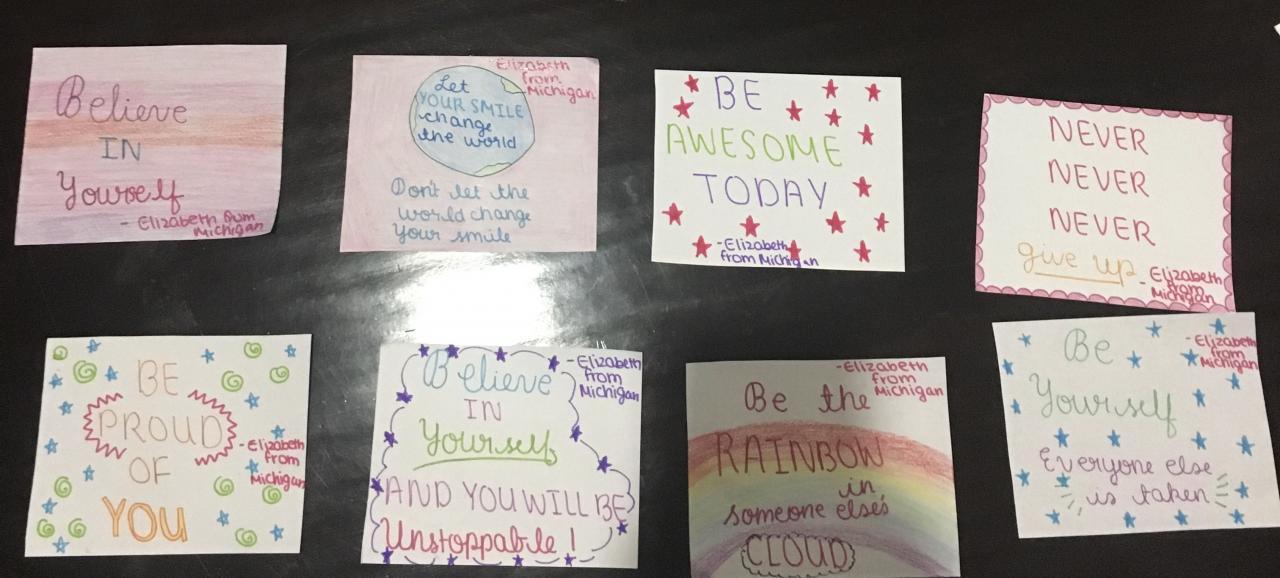 Believe
IN
Yourself
- Elizabeth from
Michigan
Elizabeth
from
Michigan
Let
YOUR SMILE
change
the world
Don't let the
world change
Your smile
BE
AWESOME
TODAY
-Elizabeth
from Michigan
NEVER
NEVER
NEVER
give up
- Elizabeth
from
Michigan
BE
PROUD
OF
YOU
- Elizabeth
from
Michigan
Believe
IN
Yourself
AND YOU WILL BE
Unstoppable!
- Elizabeth
from
Michigan
-Elizabeth
from
Michigan
Be the
RAINBOW
in
someone elses
CLOUD
- Elizabeth
from
Michigan
Be
Yourself
Everyone else
is taken